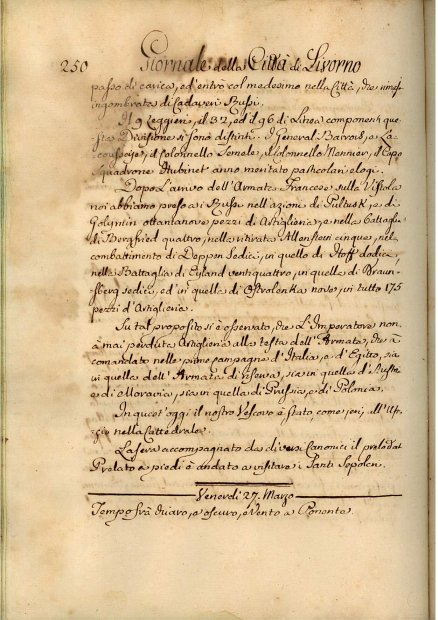 250 Giornale della Città di Livorno
passo di carica, ed entrò col medesimo nella Città, che rimase
ingombrata di Cadaveri Russi.
Il 9 Leggieri, il 32, ed il 96 di Linea componenti que-
sta Divisione si sono distinti. I General Barrois, e La-
, il Colonnello Semele, il Colonnello Meunier, il Capo
Squadrone Hubinet anno meritato particolari elogi.
Dopo l'arrivo dell'Armata Francese sulla Vistola
noi abbiamo preso ai Russi nell'azioni di Pultusk, e di
Golymin ottantanove pezzi di Artiglieria, e nella Battaglia
di Bergfried quattro, nella ritirata Allenstein cinque, nel
combattimento di Deppen sedici, in quello di Hoff dodici,
nella Battaglia di Eyland ventiquattro, in quella di Braun-
sberg sedici, ed in quella di Ostrolenka nove, in tutto 175
pezzi d'Artiglieria.
Su tal proposito si è osservato, che L'Imperatore non
à mai perduta Artiglieria alla testa dell'Armata, che à
comandato nelle prime campagne d'Italia, e d'Egitto, sia
in quella dell'Armata di riserva, sia in quella d'Austria
e di Moravia, sia in quella di Prussia, e di Polonia.
In quest'oggi il nostro Vescovo è stato, come jeri, all'Uf-
fizio nella Cattedrale.
La sera accompagnato da diversi Canonici il prelodato
Prelato a piedi è andato a visitare i Santi Sepolcri.
Venerdì 27. Marzo
Tempo frà chiaro, e oscuro, e Vento a Ponente.